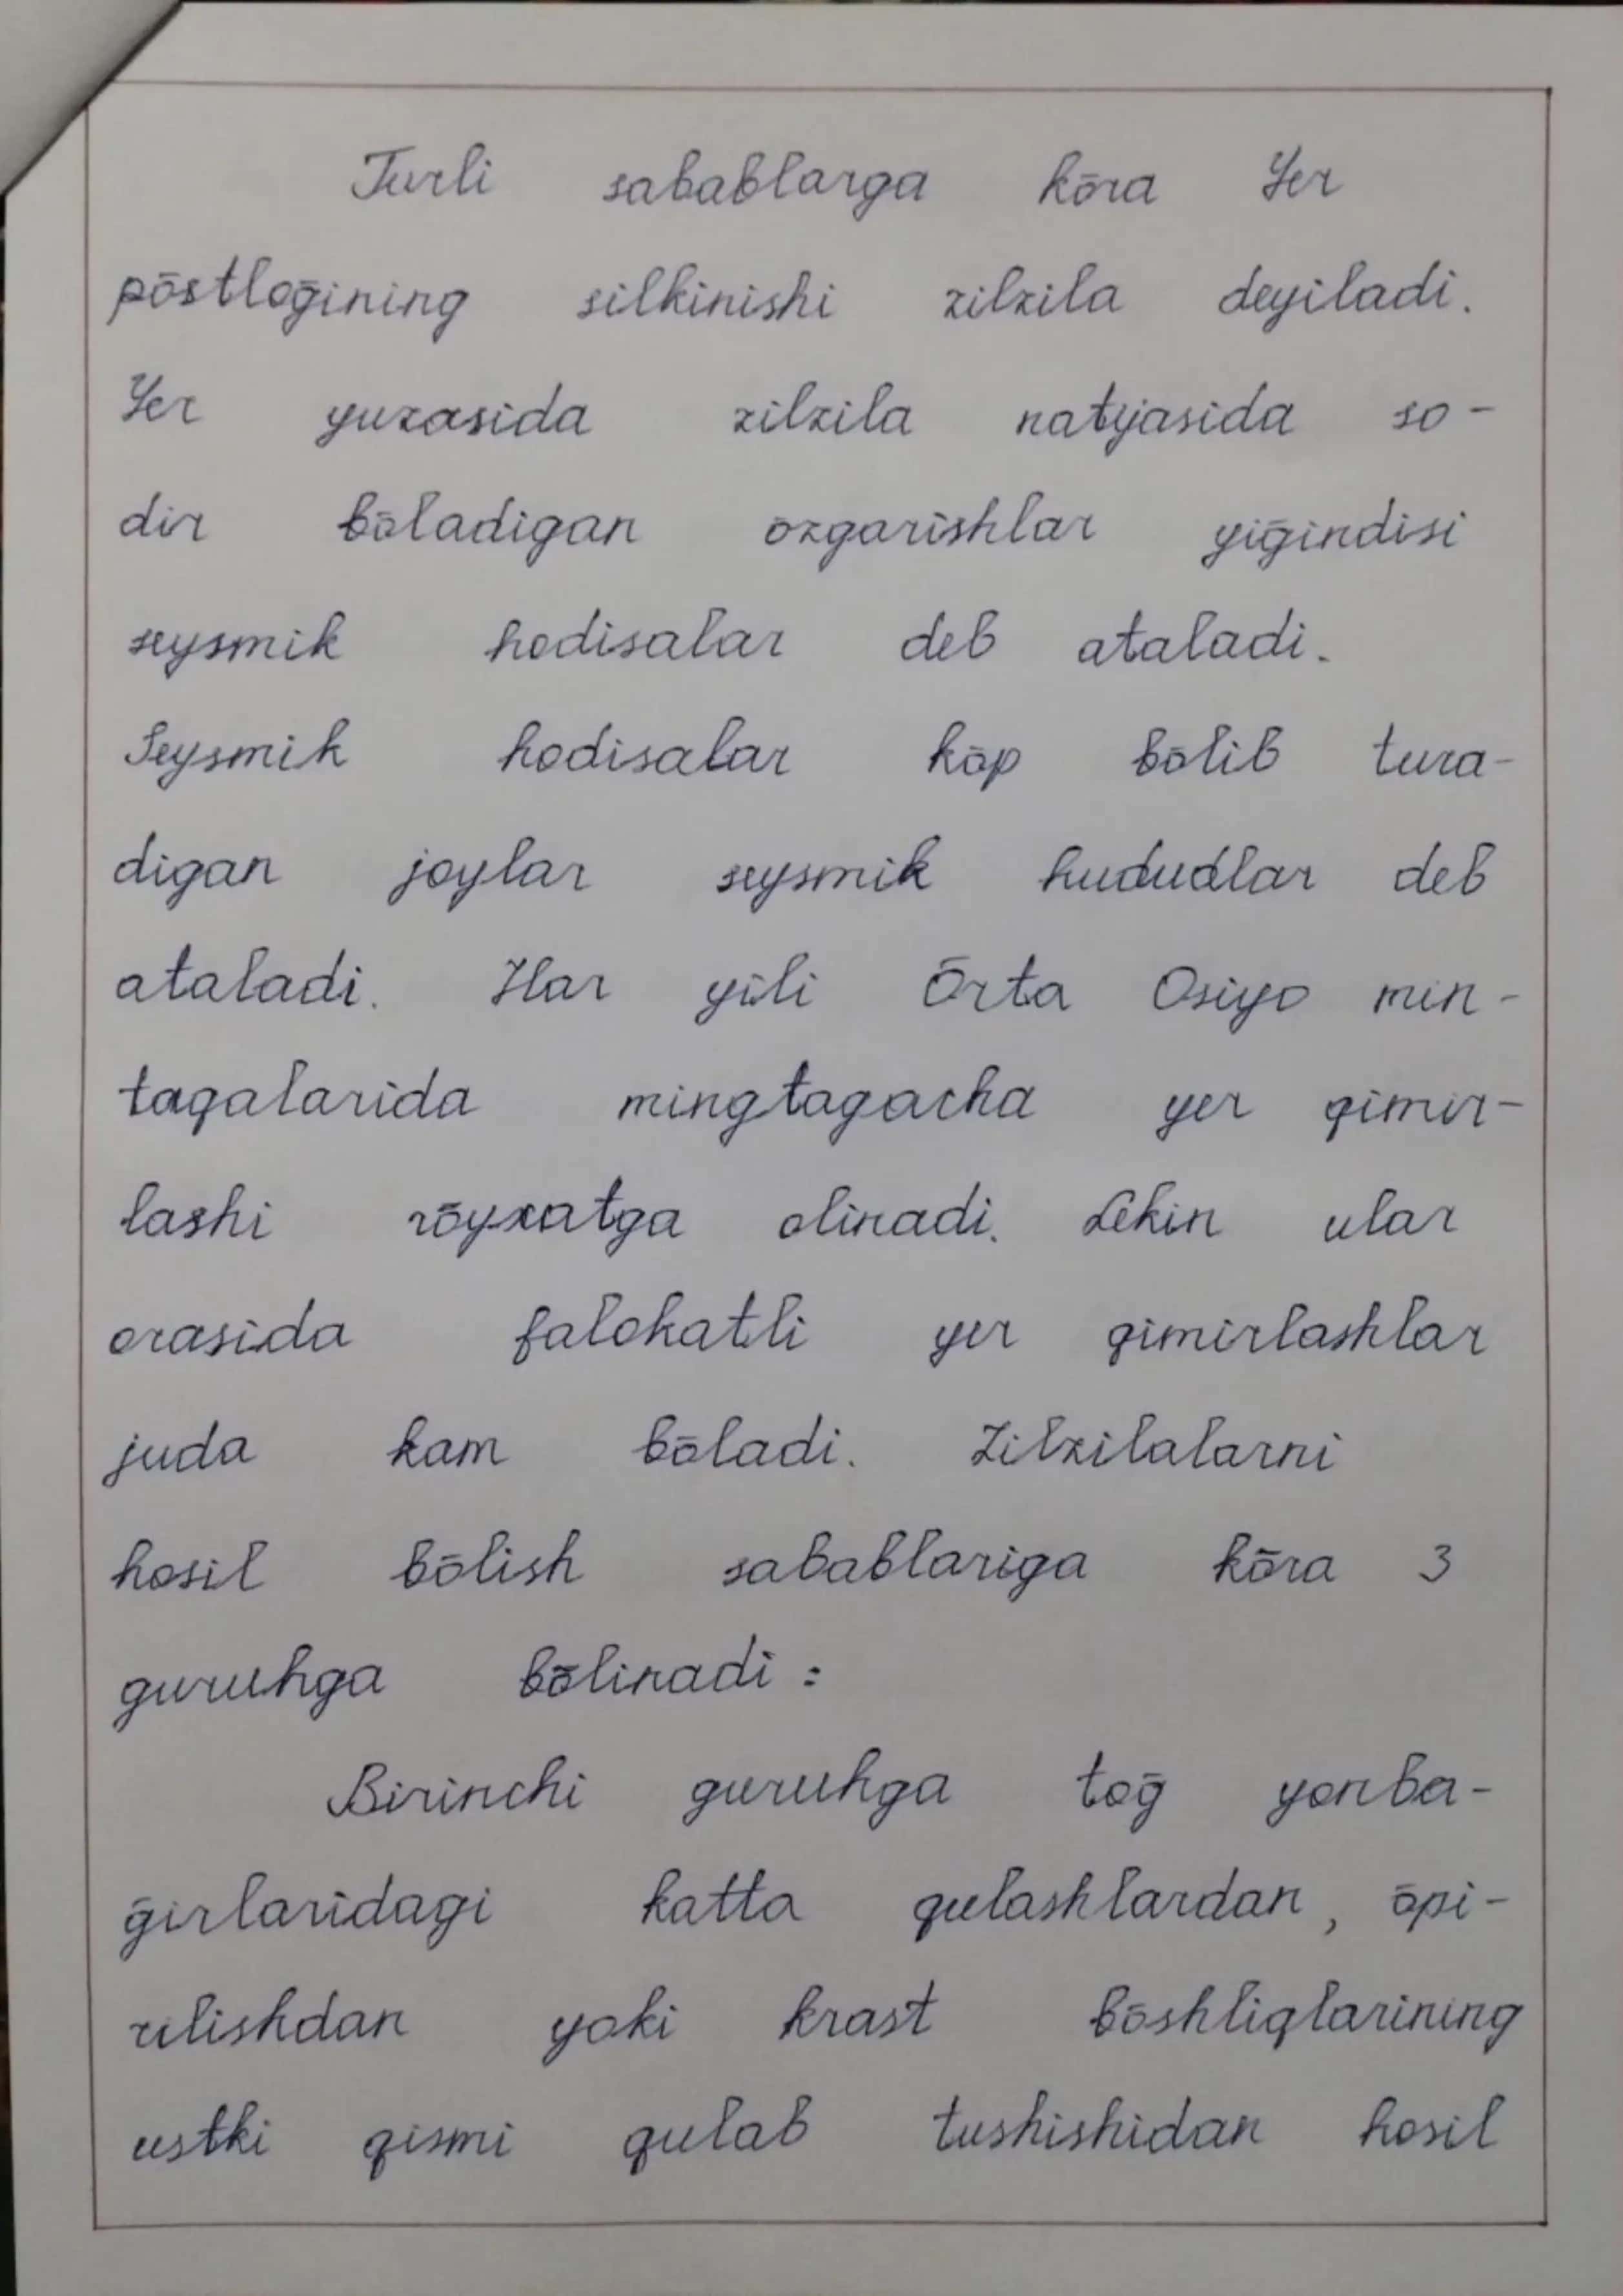 Turli sabablarga kōra Yer
pōstloḡining silkinishi zilzila deyiladi.
Yer yuzasida zilzila natijasida so-
dir bōladigan ōzgarishlar yiḡindisi
seysmik hodisalar deb ataladi.
Seysmik hodisalar kōp bōlib tura-
digan joylar seysmik hududlar deb
ataladi. Har yili Ōrta Osiyo min-
taqalarida mingtagacha yer qimir-
lashi rōyxatga olinadi. Lekin ular
orasida falokatli yer qimirlashlar
juda kam bōladi. Zilzilalarni
hosil bōlish sabablariga kōra 3
guruhga bōlinadi:
Birinchi guruhga toḡ yonba-
ḡirlaridagi katta qulashlardan, ōpi-
rilishdan yoki krast bōshliqlarining
ustki qismi qulab tushishidan hosil